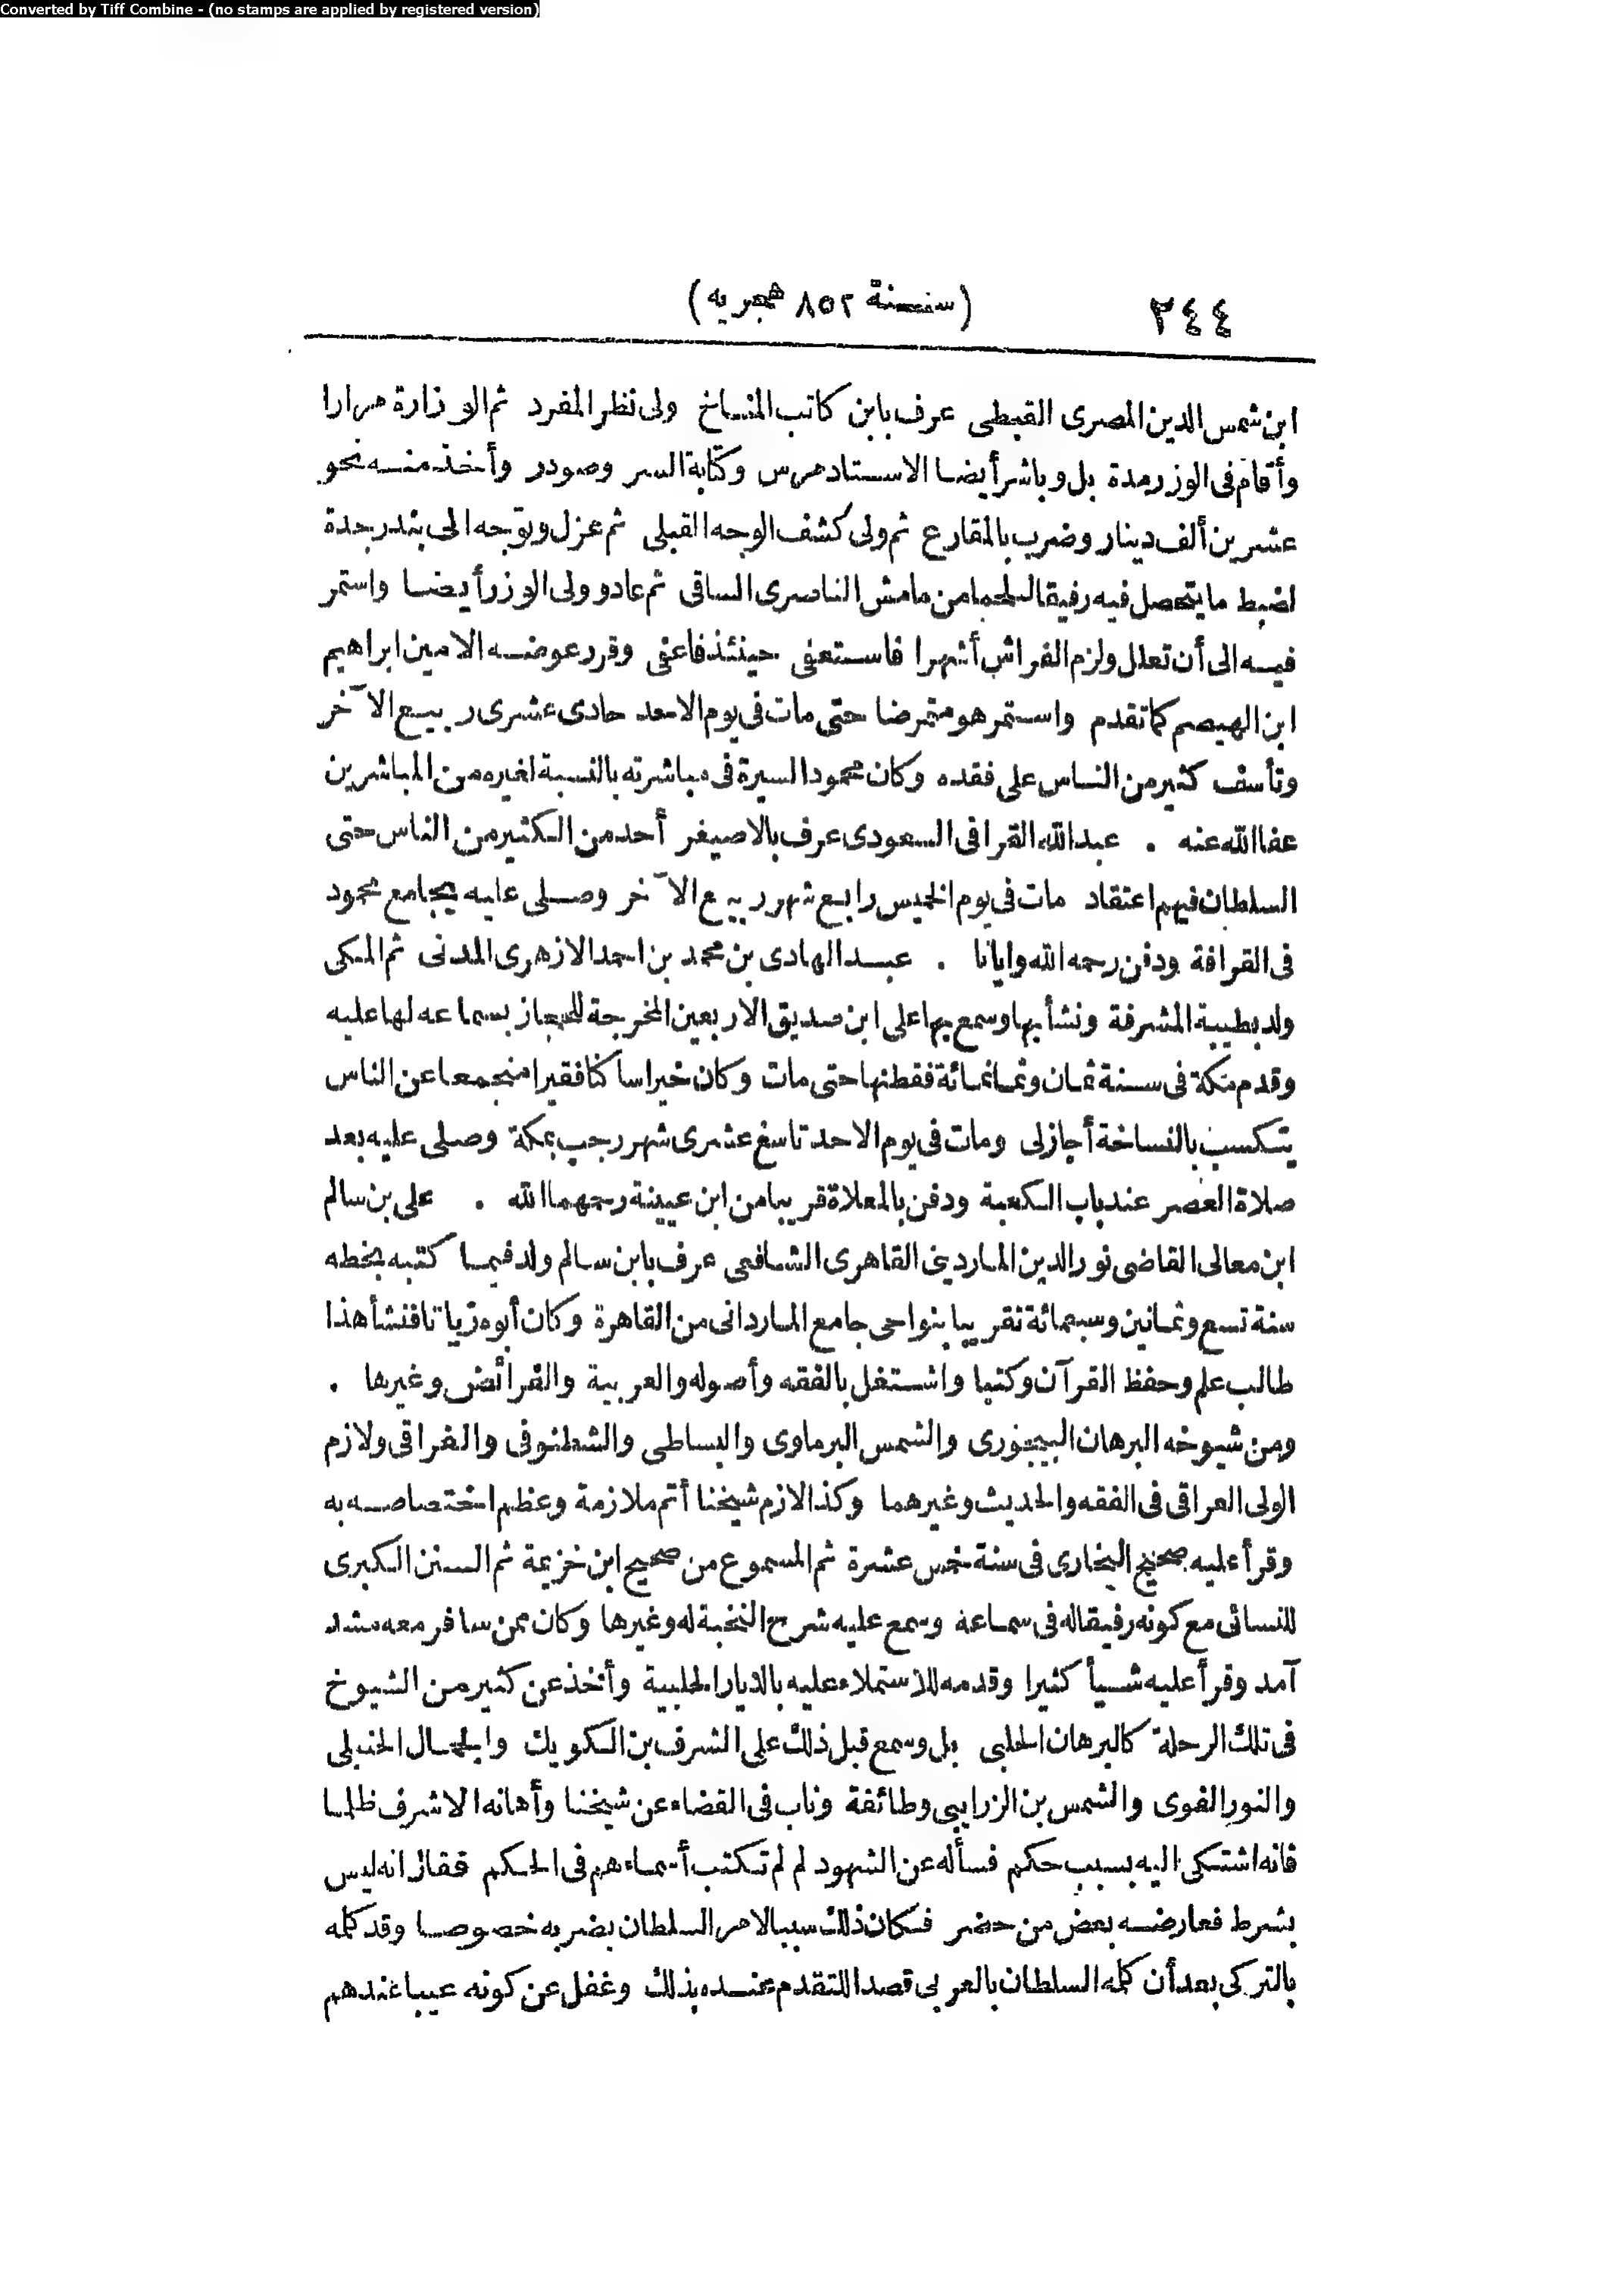 Converted by Tiff Combine - (no stamps are applied by registered version)
٢٤٤ (سنة ٨٥٢ هجريه)
ابن شمس الدين المصرى القبطى عرف بابن كاتب المناخ ولى نظر المفرد ثم الوزارة مرارا
وأقام فى الوزر مدة بل وباشر أيضا الاستاد
وكتابة السر وصودر وأخذ منه نحو
عشرين ألف دينار وضرب بالمقارع ثم ولى كشف الوجه القبلى ثم عزل وتوجه الى بندر جدة
لضبط ما يتحصل فيه رفيقا
مامش الناصرى الساقى ثم عاد وولى الوزر أيضا واستمر
فيه الى أن تعلل ولزم الفراش أشهرا فاستعفى حينئذ فاعفى وقرر عوضه الامين ابراهيم
ابن الهيصم كما تقدم واستمر هو متمرضا حتى مات فى يوم الاحد حادى عشرى ربيع الآخر
وتأسف كثير من الناس على فقده وكان محمود السيرة فى مباشرته بالنسبة لغيره من المباشرين
عفا الله عنه . عبد الله القرافى السعودى عرف بالاصيفر أحد من الكثير من الناس حتى
السلطان فيهم اعتقاد مات فى يوم الخميس رابع شهر ربيع الآخر وصلى عليه بجامع محمود
فى القرافة ودفن رحمه الله وايانا . عبد الهادى بن محمد بن احمد الازهرى المدنى ثم المكى
ولد بطيبة المشرفة ونشأ بها وسمع بها على ابن صديق الاربعين المخرجة للحجار بسماعه لها عليه
وقدم مكة فى سنة ثمان وثمانمائة فقطنها حتى مات وكان خيرا ساكنا فقيرا منجمعا عن الناس
يتكسب بالنساخة أجاز لى ومات فى يوم الاحد تاسع عشرى شهر رجب بمكة وصلى عليه بعد
صلاة العصر عند باب الكعبة ودفن بالمعلاة قريبا من ابن عيينة رحمهما الله . على بن سالم
ابن معالى القاضى نور الدين الماردينى القاهرى الشافعى عرف بابن سالم ولد فيما كتبه بخطه
سنة تسع وثمانين وسبعمائة تقريبا بنواحى جامع الماردانى من القاهرة وكان أبوه زياتا فنشأ هذا
طالب علم وحفظ القرآن وكتبا واشتغل بالفقه وأصوله والعربية والفرائض وغيرها .
ومن شيوخه البرهان البيجورى والشمس البرماوى والبساطى والشطنوفى والغراقى ولازم
الولى العراقى فى الفقه والحديث وغيرهما وكذا لازم شيخنا أتم ملازمة وعظم اختصاصه به
وقرأ عليه صحيح البخارى فى سنة خمس عشرة ثم المسموع من صحيح ابن خزيمة ثم السنن الكبرى
للنسائى مع كونه رفيقا له فى سماعه وسمع عليه شرح النخبة له وغيرها وكان ممن سافر معه سنة
آمد وقرأ عليه شيأ كثيرا وقدمه للاستملاء عليه بالديار الحلبية وأخذ عن كثير من الشيوخ
فى تلك الرحلة كالبرهان الحلبى بل وسمع قبل ذلك على الشرف بن الكويك والجمال الحنبلى
والنور الفوى والشمس بن الزراتيتى وطائفة وناب فى القضاء عن شيخنا وأهانه الاشرف ظلما
فانه اشتكى اليه بسبب حكم فسأله عن الشهود لم لم تكتب أسماءهم فى الحكم فقال انه ليس
بشرط فعارضه بعض من حضر فكان ذلك سببا لامر السلطان بضربه خصوصا وقد كلمه
بالتركى بعد أن كلمه السلطان بالعربى قصدا للتقدم عنده بذلك وغفل عن كونه عيبا عندهم